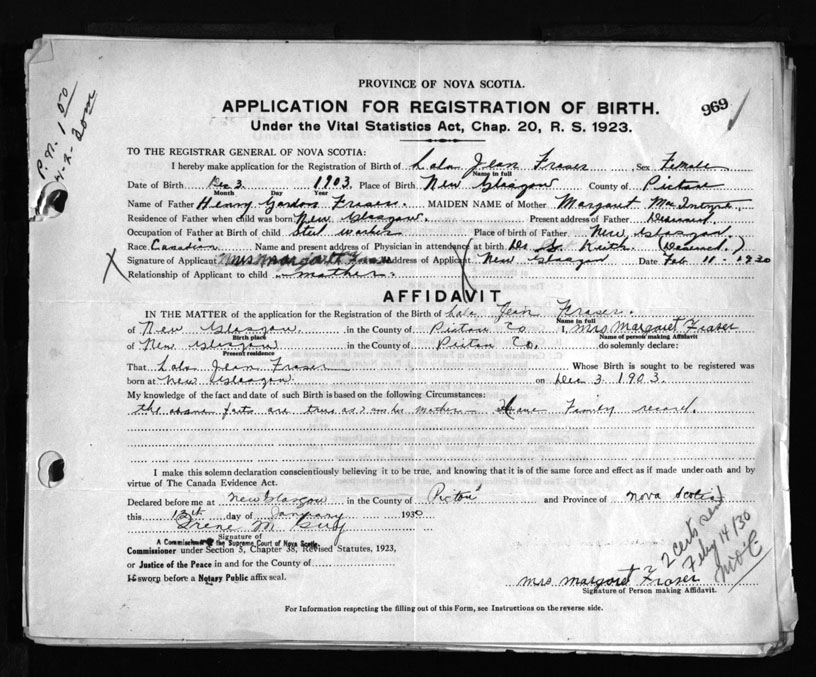 P.N. 1.00
PROVINCE OF NOVA SCOTIA.
APPLICATION FOR REGISTRATION OF BIRTH.
969
Under the Vital Statistics Act, Chap. 20, R. S. 1923.
TO THE REGISTRAR GENERAL OF NOVA SCOTIA:
I hereby make application for the Registration of Birth of Lala Jean Fraser Sex Female
Name in full
Date of Birth Dec 3 1903. Place of Birth New Glasgow County of Pictou
Month Day Year
Name of Father Henry Gordon Fraser. MAIDEN NAME of Mother Margaret
Residence of Father when child was born New Glasgow. Present address of Father Deceased.
Occupation of Father at Birth of child Steel worker Place of birth of Father New Glasgow.
Race Canadian Name and present address of Physician in attendance at birth Dr. Keith. (Deceased.)
Signature of Applicant Mrs Margaret Fraser Address of Applicant New Glasgow Date Feb 11 - 1930
Relationship of Applicant to child mother.
AFFIDAVIT
IN THE MATTER of the application for the Registration of the Birth of Lala Jean Fraser.
Name in full
of New Glasgow. in the County of Pictou Co I, Mrs Margaret Fraser
Birth place Name of person making Affidavit
of New Glasgow in the County of Pictou Co. do solemnly declare:
Present residence
That Lala Jean Fraser Whose Birth is sought to be registered was
born at New Glasgow on Dec 3 1903.
My knowledge of the fact and date of such Birth is based on the following Circumstances:
the above facts are true as I am her mother. Have Family record.
I make this solemn declaration conscientiously believing it to be true, and knowing that it is of the same force and effect as if made under oath and by
virtue of The Canada Evidence Act.
Declared before me at New Glasgow in the County of Pictou and Province of Nova Scotia
this 13th day of January 1930
Irene M Guy
Signature of
A Commissioner of the Supreme Court of Nova Scotia
Commissioner under Section 5, Chapter 38, Revised Statutes, 1923,
or Justice of the Peace in and for the County of
If sworn before a Notary Public affix seal.
2 certs sent
Feby 14/30
Mrs Margaret Fraser
Signature of Person making Affidavit.
For Information respecting the filling out of this Form, see Instructions on the reverse side.